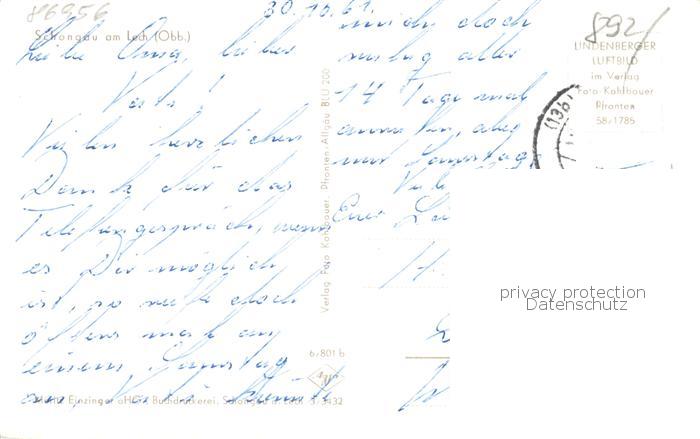 86956
30.10.61
892
Schongau am Lech (Obb.)
Liebe Oma, lieber
Vati!
Vielen herzlichen
Dank für das
Telefongespräch, wenn
es Dir möglich
ist, so ruft doch
öfters mal an
einem Samstag
an, Vati könnte
mich doch
alle
14 Tage mal
anrufen, aber
nur Samstag
Viele
Eure
LINDENBERGER
LUFTBILD
im Verlag
Foto-Kahlbauer
Pfronten
58/1785
Verlag Foto Kahlbauer, Pfronten-Allgäu BLU 200
6/801 b
Einzinger oHG., Buchdruckerei, Schongau a. Lech 3/3432
privacy protection
Datenschutz